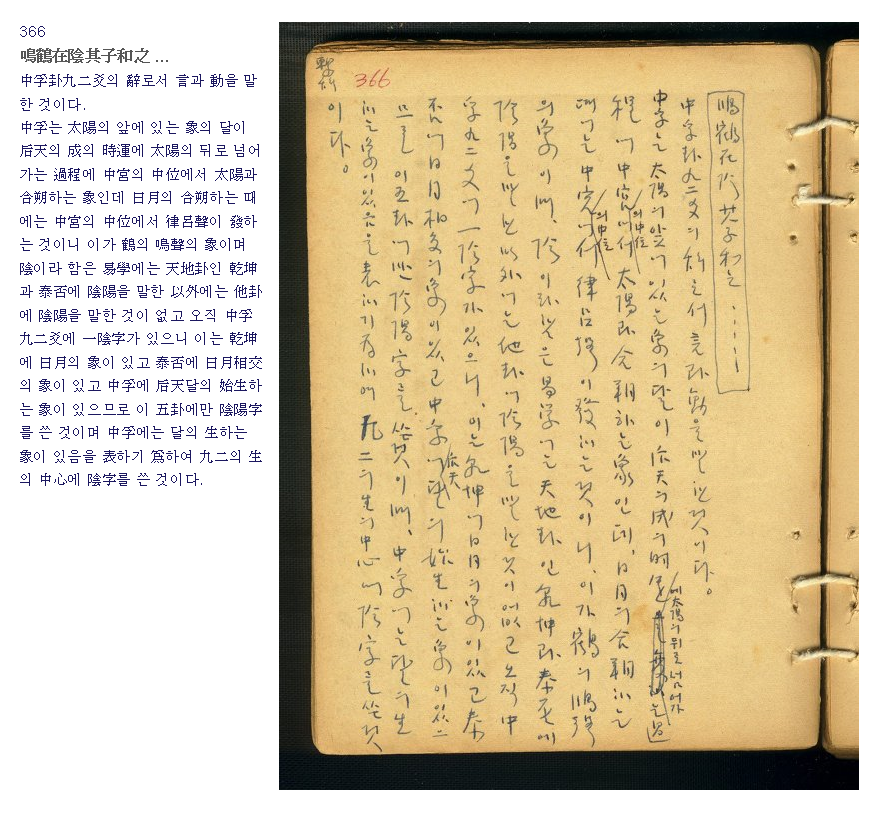 366
鳴鶴在陰其子和之 ...
中孚卦九二爻의 辭로서 言과 動을 말
한 것이다.
中孚는 太陽의 앞에 있는 象의 달이
后天의 成의 時運에 太陽의 뒤로 넘어
가는 過程에 中宮의 中位에서 太陽과
合朔하는 象인데 日月의 合朔하는 때
에는 中宮의 中位에서 律呂聲이 發하
는 것이니 이가 鶴의 鳴聲의 象이며
陰이라 함은 易學에는 天地卦인 乾坤
과 泰否에 陰陽을 말한 以外에는 他卦
에 陰陽을 말한 것이 없고 오직 中孚
九二爻에 一陰字가 있으니 이는 乾坤
에 日月의 象이 있고 泰否에 日月相交
의 象이 있고 中孚에 后天달의 始生하
는 象이 있으므로 이 五卦에만 陰陽字
를 쓴 것이며 中孚에는 달의 生하는
象이 있음을 表하기 爲하여 九二의 生
의 中心에 陰字를 쓴 것이다.
366
鳴鶴在陰其子和之 ......
中孚卦九二爻의 辭로서 言과 動을 말한 것이다.
中孚는 太陽의 앞에 있는 象의 달이 后天의 成의 時運에 太陽의 뒤로 넘어가는 過
程에 中宮의 中位에서 太陽과 合朔하는 象인데, 日月의 合朔하는
때에는 中宮의 中位에서 律呂聲이 發하는 것이니, 이가 鶴의 鳴聲
의 象이며, 陰이라 함은 易學에는 天地卦인 乾坤과 泰否에
陰陽을 말한 以外에는 他卦에 陰陽을 말한 것이 없고 오직 中
孚九二爻에 一陰字가 있으니, 이는 乾坤에 日月의 象이 있고 泰
否에 日月相交의 象이 있고 中孚에 后天달의 始生하는 象이 있으
므로 이 五卦에만 陰陽字를 쓴 것이며, 中孚에는 달의 生
하는 象이 있음을 表하기 爲하여 九二의 生의 中心에 陰字를 쓴 것
이다.